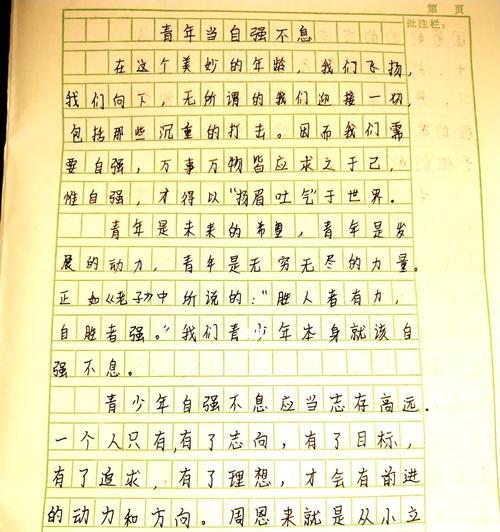 第 页
批注栏：
青年当自强不息
在这个美妙的年龄，我们飞扬，
我们向下，无所谓的我们迎接一切，
包括那些沉重的打击。因而我们需
要自强，万事万物皆应求之于己，
惟自强，才得以“扬眉吐气”于世界。
青年是未来的希望，青年是发
展的动力，青年是无穷无尽的力量。
正如《老子》中所说的：“胜人者有力，
自胜者强。”我们青少年本身就该自
强不息。
青少年自强不息应当志存高远．
一个人只有，有了志向，有了目标，
有了追求，有了理想，才会有前进
的动力和方向。周恩来就是从小立